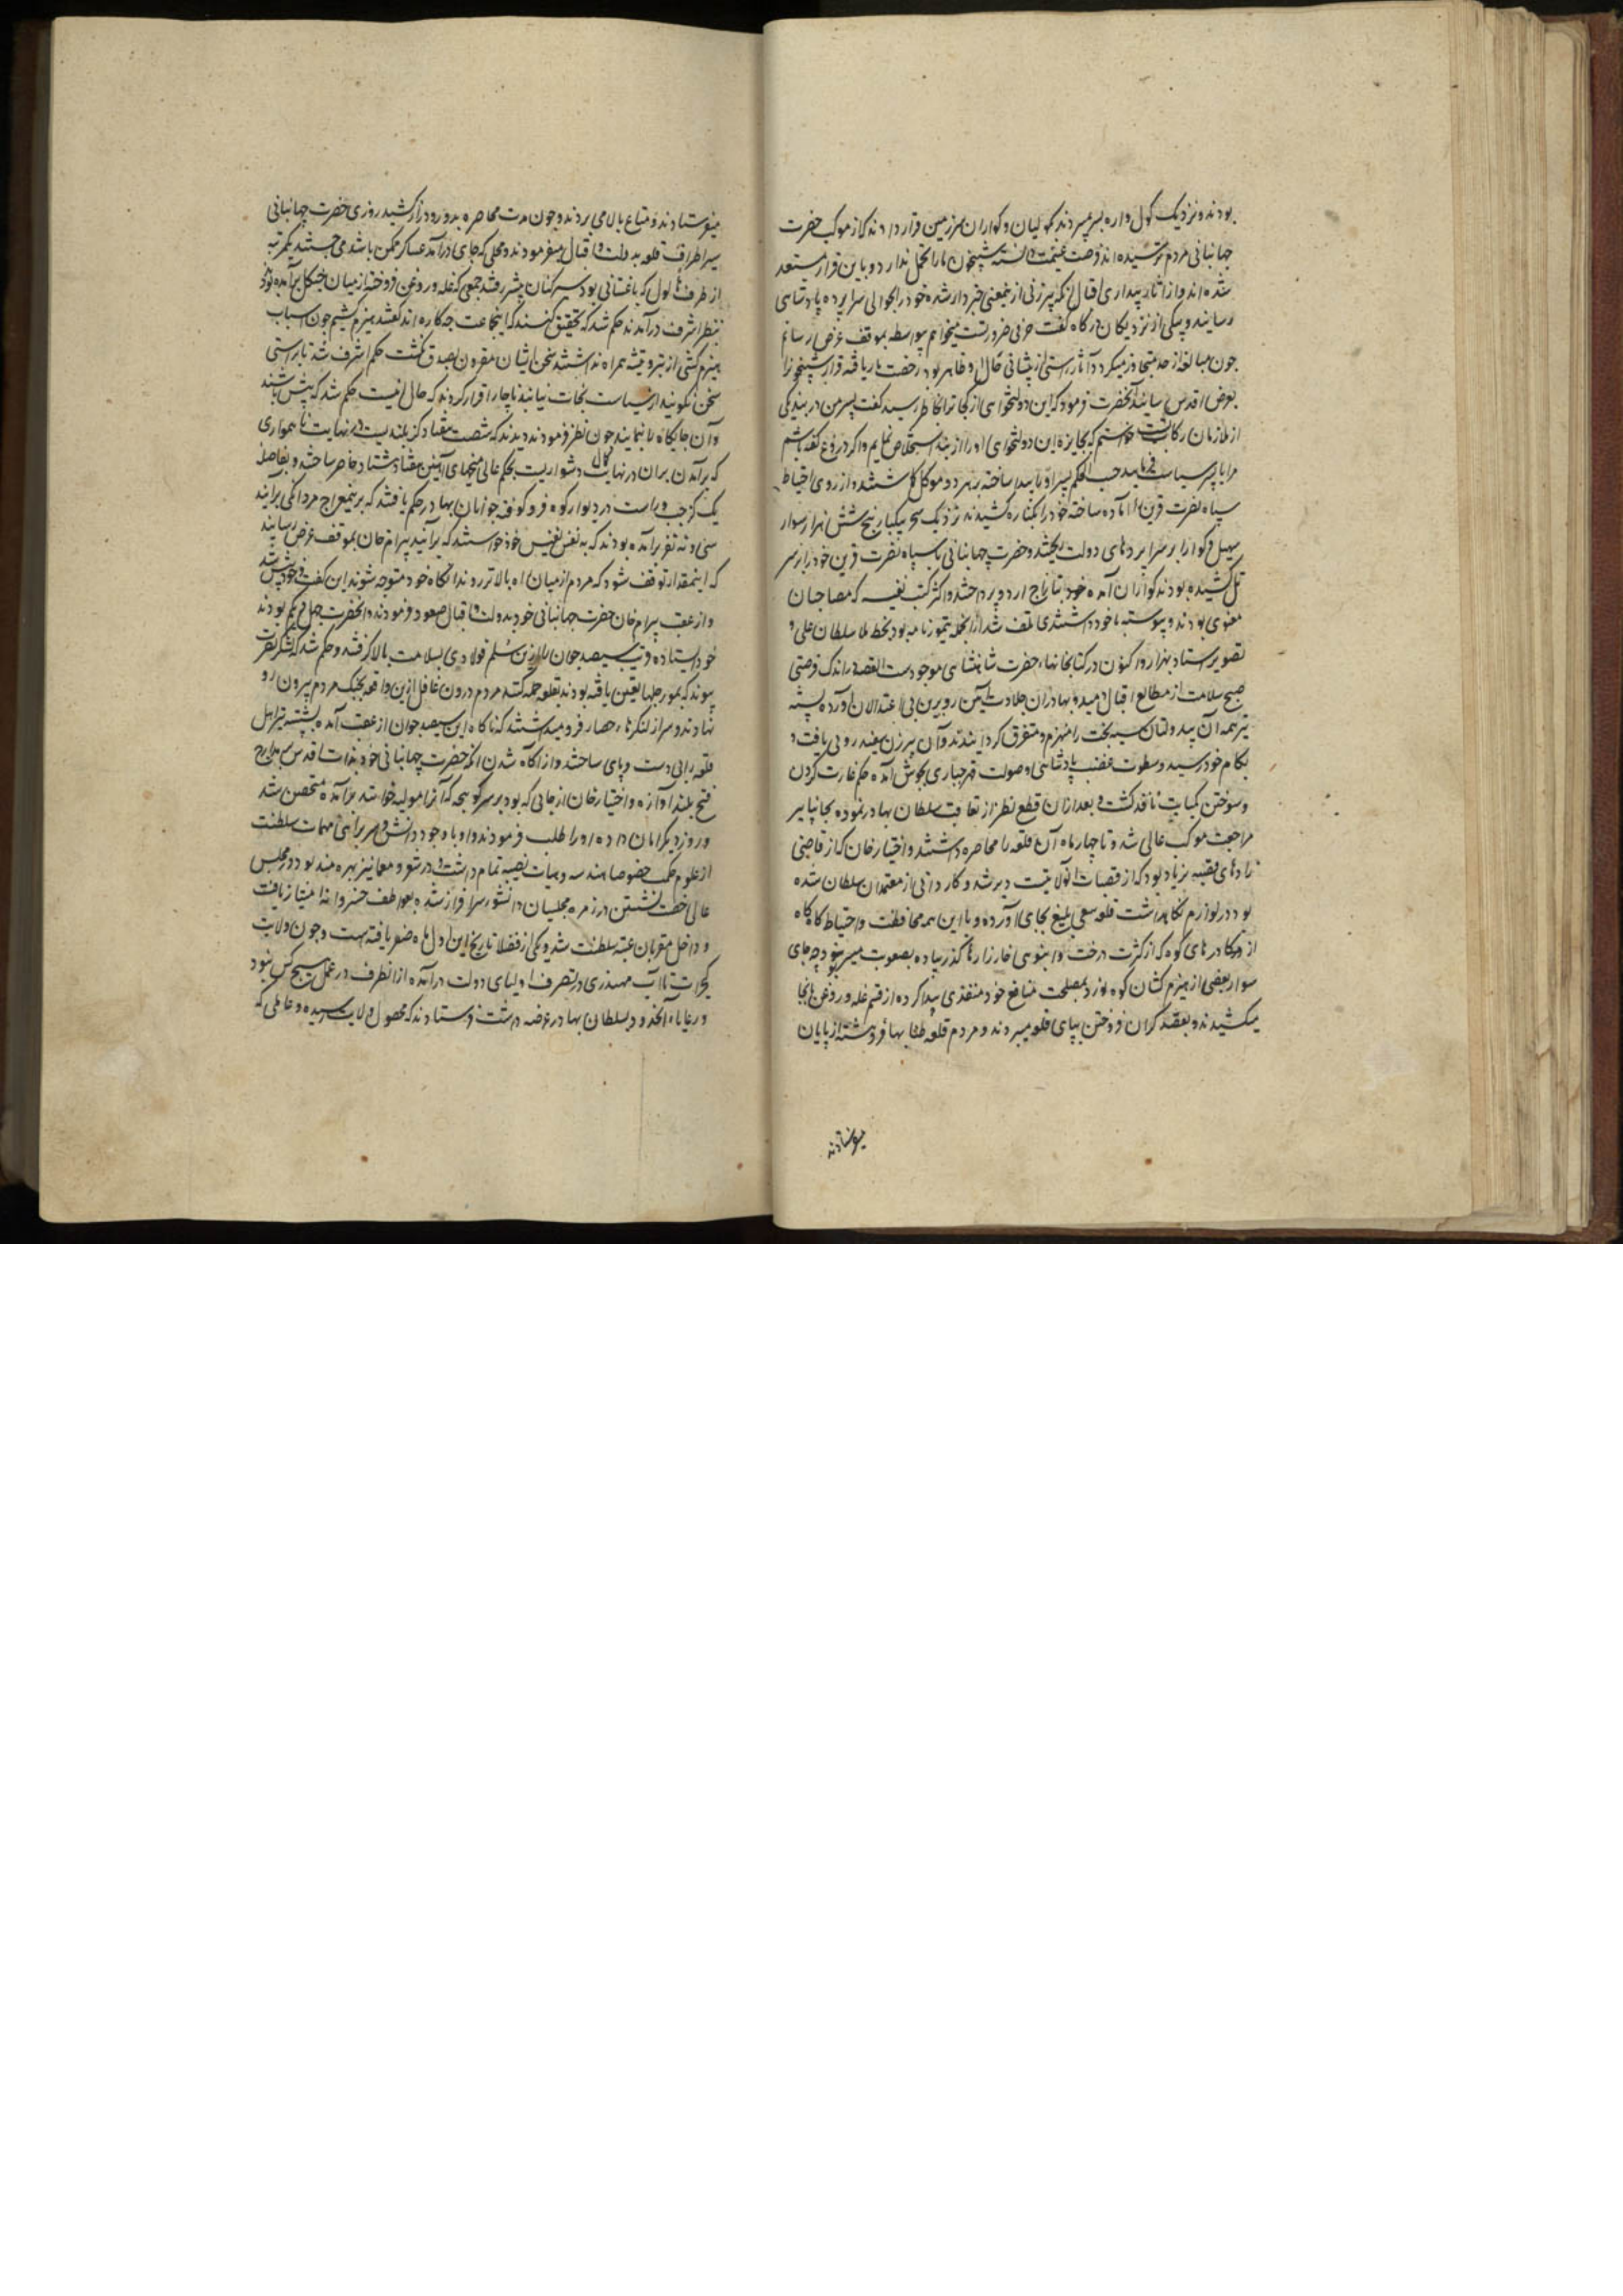 بودند و نزدیک کول واره بسر میبردند کولیان و کواران سرزمین قرار دادند که از موکب حضرت
جهانبانی مردم ترسیده اند فرصت غنیمت دانسته شبیخون ما را تحمل ندارد و باین قرار مستعد
شده اند و از آثار بیداری اقبال آنکه پیرزنی ازینمعنی خبردار شده خود را بحوالی سراپرده پادشاهی
رسانید و بیکی از نزدیکان درگاه گفت حرفی ضروریست میخواهم بیواسطه بموقف عرض رسانم
چون مبالغه از حد متجاوز میکرد و آثار راستی از پیشانی حال او ظاهر بود رخصت بار یافته قرار شبیخون را
بعرض اقدس رسانید آنحضرت فرمود که این دولتخواهی از کجا ترا بخاطر رسید گفت پسر من در بند یکی
از ملازمان رکابست خواستم که بجایزه این دولتخواهی او را از بند استخلاص نمایم و اگر دروغ گفته باشم
مرا با پسر سیاست فرمایید حسب الحکم پسر او را پیدا ساخته بر هر دو موکل گماشتند و از روی احتیاط
سپاه نصرت قرین را آماده ساخته خود را بکناره کشیدند نزدیک سحر بیکبار پنج شش هزار سوار
بهیل و کوار بر سراپردهای دولت ریختند و حضرت جهانبانی با سپاه نصرت قرین خود را بر سر
تل کشیده بودند کواران آمده خود بتاراج اردو پرداختند و اکثر کتب نفیسه که مصاحبان
معنوی بودند و پیوسته با خود داشتندی تلف شد از آنجمله تیمورنامه بود بخط ملا سلطان علی و
تصویر استاد بهزاد و اکنون در کتابخانهاء حضرت شاهنشاهی موجودست القصه در اندک فرصتی
صبح سلامت از مطالع اقبال دمید و بهادران جلادت آیین رو برین بی اعتدالان آورده بشیبه
تیر همه آن بیدولتان سیه بخت را منهزم و متفرق گردانیدند و آن پیرزن سفیدرویی یافت و
بکام خود رسید و سطوت غضب پادشاهی و صولت قهر جباری بجوش آمده حکم غارت کردن
و سوختن کمبایت نافذ گشت و بعد از آن قطع نظر از تعاقب سلطان بهادر نموده بجانپانیر
مراجعت موکب عالی شد و تا چهار ماه آن قلعه را محاصره داشتند و اختیار خان که از قاضی
زادهای قصبه نریاد بود که از قصبات آنولایتست و برشد و کاردانی از معتمدان سلطان شده
بود در لوازم نگاهداشت قلعه سعی بلیغ بجای آورده و با این همه محافظت و احتیاط گاه گاه
از درهای کوه که از کثرت درخت و انبوهی خارزارها گذر پیاده بصعوبت میسر بود چه جای
سوار بعضی از هیزم کشان کوه نورد بمصلحت منافع خود منفذی پیدا کرده از قسم غله و روغن بآنجا
میکشیدند و بقصد گران فروختن بپای قلعه میبردند و مردم قلعه طنابها فروهشته از پایان
میفرستادند
میفرستادند و متاع بالا می بردند و چون مدت محاصره بدور و دراز کشید روزی حضرت جهانبانی
بسیر اطراف قلعه بدولت و اقبال میفرمودند و محلی که جای درآمد عساکر ممکن باشد می جستند یکمرتبه
از طرف هالول که باغستانی بود سیر کنان پیشتر رفتند جمعی که غله و روغن فروخته از میان جنگل برآمده بودند
بنظر اشرف درآمدند حکم شد که تحقیق کنند که اینجماعت چه کاره اند گفتند هیزم کشیم چون اسباب
هیزم کشی از تبر و تیشه همراه نداشتند سخن ایشان مقرون بصدق نگشت حکم اشرف شد تا براستی
سخن نگویند از سیاست نجات نیابند ناچار اقرار کردند که حال اینست حکم شد که پیش باشند
و آن جایگاه را نمایند چون نظر فرمودند دیدند که شصت هفتاد گز بلندیست و در نهایت ناهمواری
که برآمدن بران در نهایت کمال دشواریست بحکم عالی میخهای آهنین هفتاد هشتاد حاضر ساختند و بفاصله
یک گز چپ و راست در دیوار کوه فرو کوفته جوانان بهادر حکم یافتند که برین معراج مردانگی برآیند
سی و نه نفر برآمده بودند که به نفس نفیس خود خواستند که برآیند بیرام خان بموقف عرض رسانید
که اینمقدار توقف شود که مردم از میان راه بالاتر روند آنگاه خود متوجه شوند این گفت و خود پیش شد
و از عقب بیرام خان حضرت جهانبانی خود بدولت و اقبال صعود فرمودند و آنحضرت چهل و یکم بودند
خود ایستاده قریب سیصد جوان را ازین سلم فولادی بسلامت بالا گرفتند و حکم شد که لشکر نصرت
پیوند که بمورچلها تعین یافته بودند بقلعه حمله کنند مردم درون غافل ازین واقعه بجنگ مردم بیرون رو
نهادند و سر از کنگرهاء حصار فرو میداشتند که ناگاه این سیصد جوان از عقب آمده بشیبه تیر اهل
قلعه را بی دست و پای ساختند و از آگاه شدن آنکه حضرت جهانبانی خود بذات اقدس بر مدارج
فتح بلند آوازه و اختیار خان از جایی که بود بر سر کوهچه که آنرا مولیه خوانند برآمده متحصن شد
و روز دیگر امان داده او را طلب فرمودند و او با وجود دانش در سربراهی مهمات سلطنت
از علوم حکمت خصوصا هندسه و هیات نصیبه تمام داشت و در شعر و معما نیز بهره مند بود در مجلس
عالی رخصت نشستن در زمره مجلسیان دانشور سرافراز شده بعواطف خسروانه امتیاز یافت
و داخل مقربان عتبه سلطنت شد و یکی از فضلا تاریخ این اول هفته ماه صفر یافته است و چون ولایت
گجرات تا آب مهندری در تصرف اولیای دولت درآمده از آنطرف در عمل هیچ کس نبود
و رعایاء آنحدود بسلطان بهادر عرضه داشت فرستادند که محصول ولایت رسیده و عاملی که